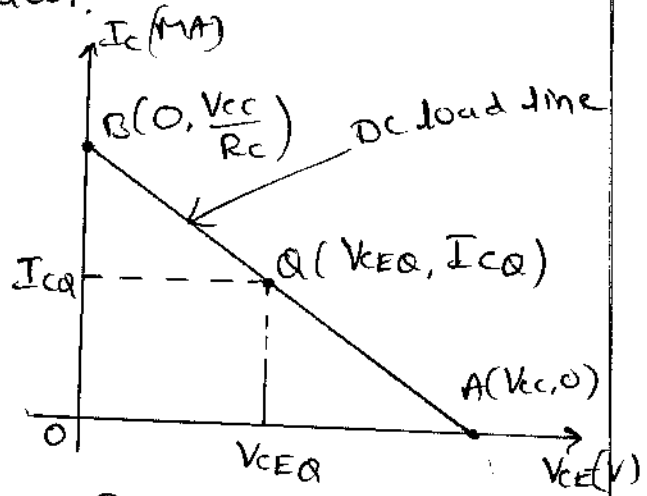 I_C(MA)
B(0, V_CC/R_C)
DC load line
I_CQ
Q(V_CEQ, I_CQ)
A(V_CC,0)
0
V_CEQ
V_CE(V)